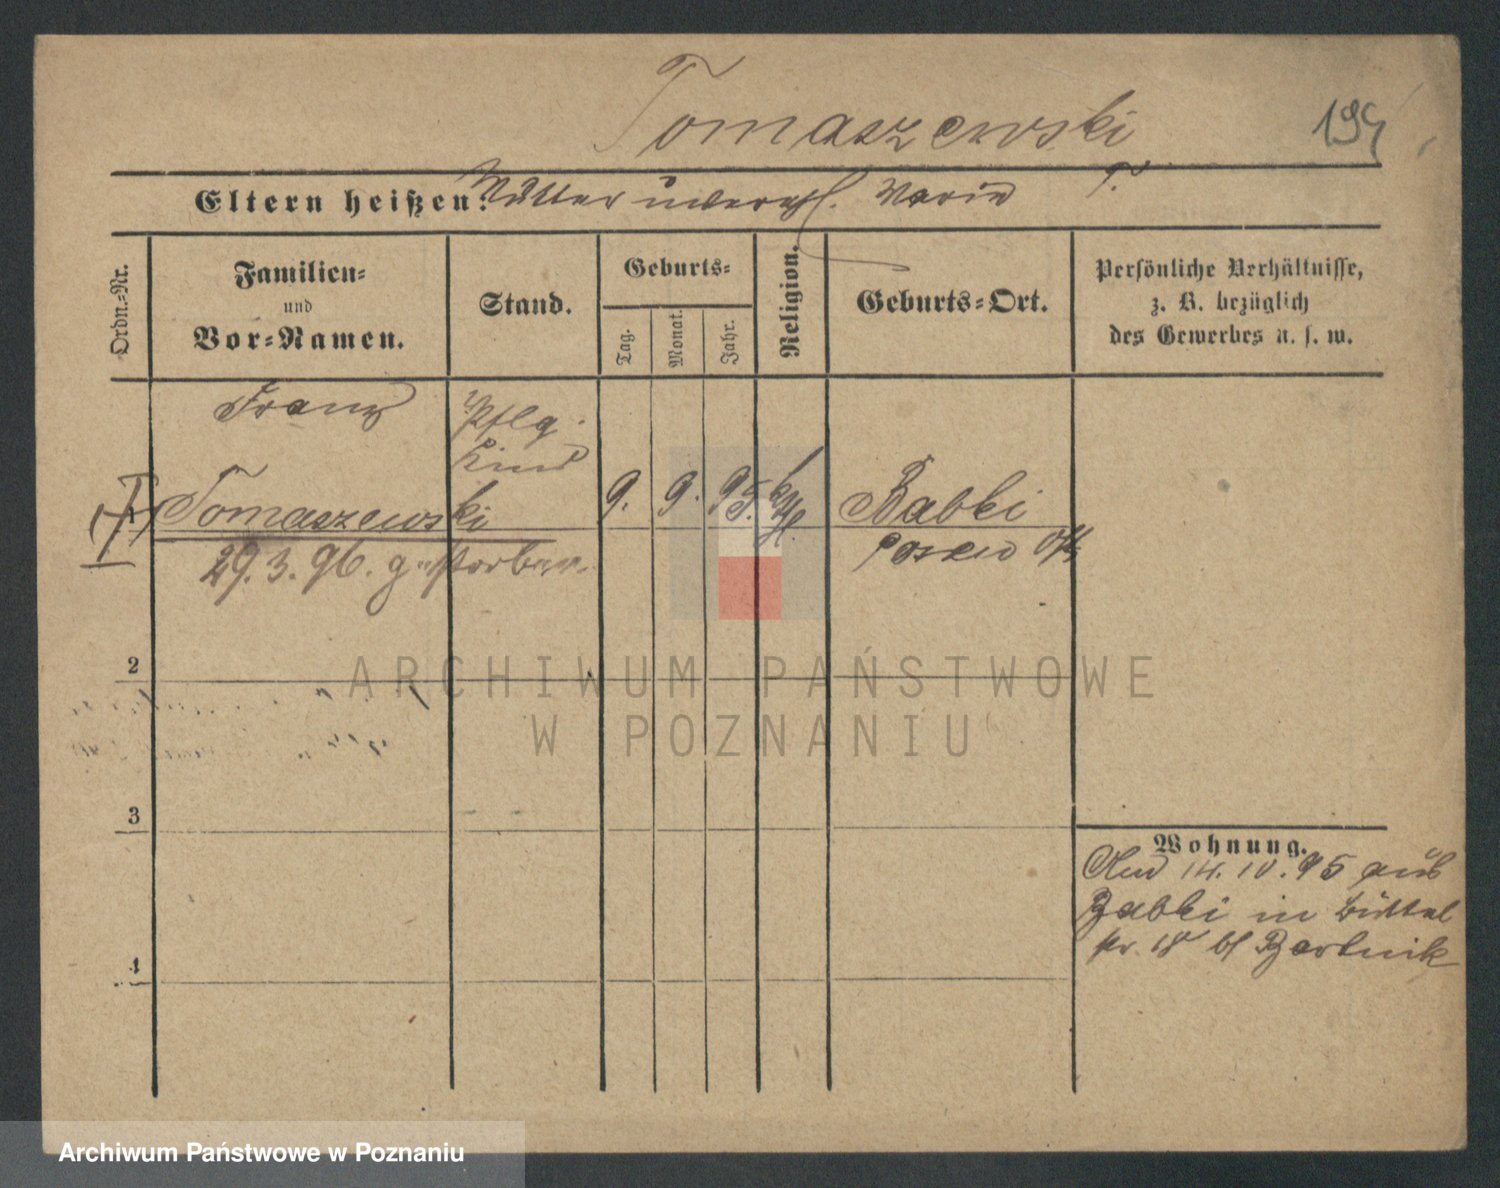 Tomaszewski
195
Eltern heißen: Mutter unverehl. Marie T.
Ordn.-Nr.
Familien-
und
Vor-Namen.
Stand.
Geburts-
Tag.
Monat.
Jahr.
Religion.
Geburts-Ort.
Persönliche Verhältnisse,
z. B. bezüglich
des Gewerbes u. s. w.
Franz
Pflg.
Kind
1 Tomaszewski 9. 9. 95. kth. Babki
29.3.96. gestorben. Posen Ost
2
3
4
Wohnung.
Am 14.10.95 aus
Babki in Büttel
str. 18 bei Bartnik
ARCHIWUM PAŃSTWOWE
W POZNANIU
Archiwum Państwowe w Poznaniu